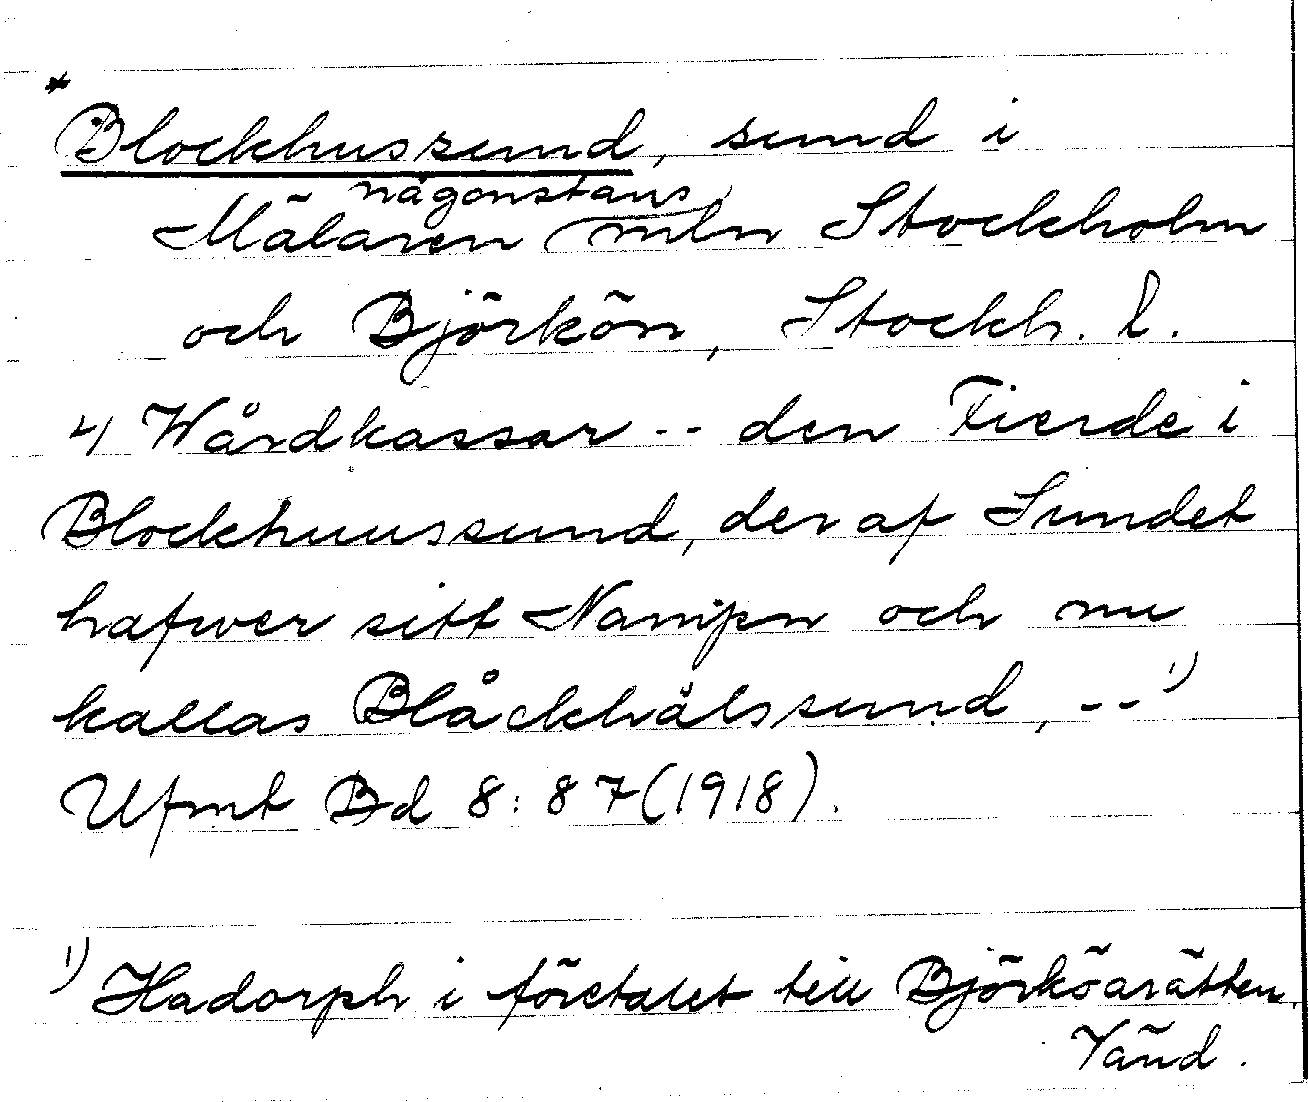 *
Blockhussund, sund i
någonstans
Mälaren mln Stockholm
och Björkön, Stockh. l.
4) Wårdkassar -- den Fierde i
Blockhuussund, der af Sundet
hafwer sitt Nampn och nu
kallas Blåckhälssund, -- 1)
Ufmt Bd 8:87 (1918).
1) Hadorph i företalet till Björköarätten.
Vänd.